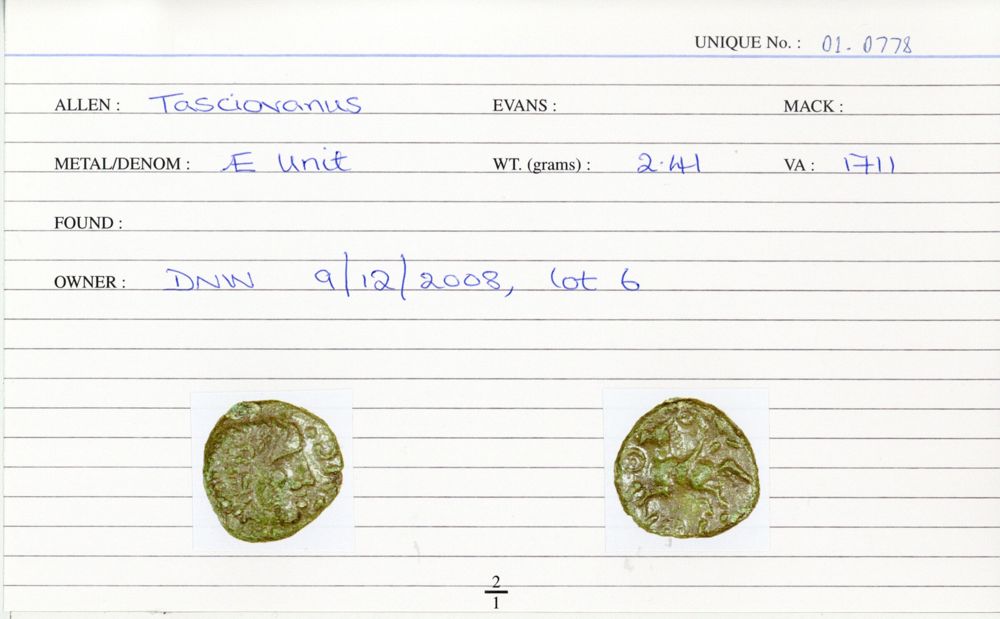 UNIQUE No. : 01-0778
ALLEN : Tasciovanus EVANS : MACK :
METAL/DENOM : Æ Unit WT. (grams) : 2.41 VA : 1711
FOUND :
OWNER : DNW 9/12/2008, lot 6
2
1